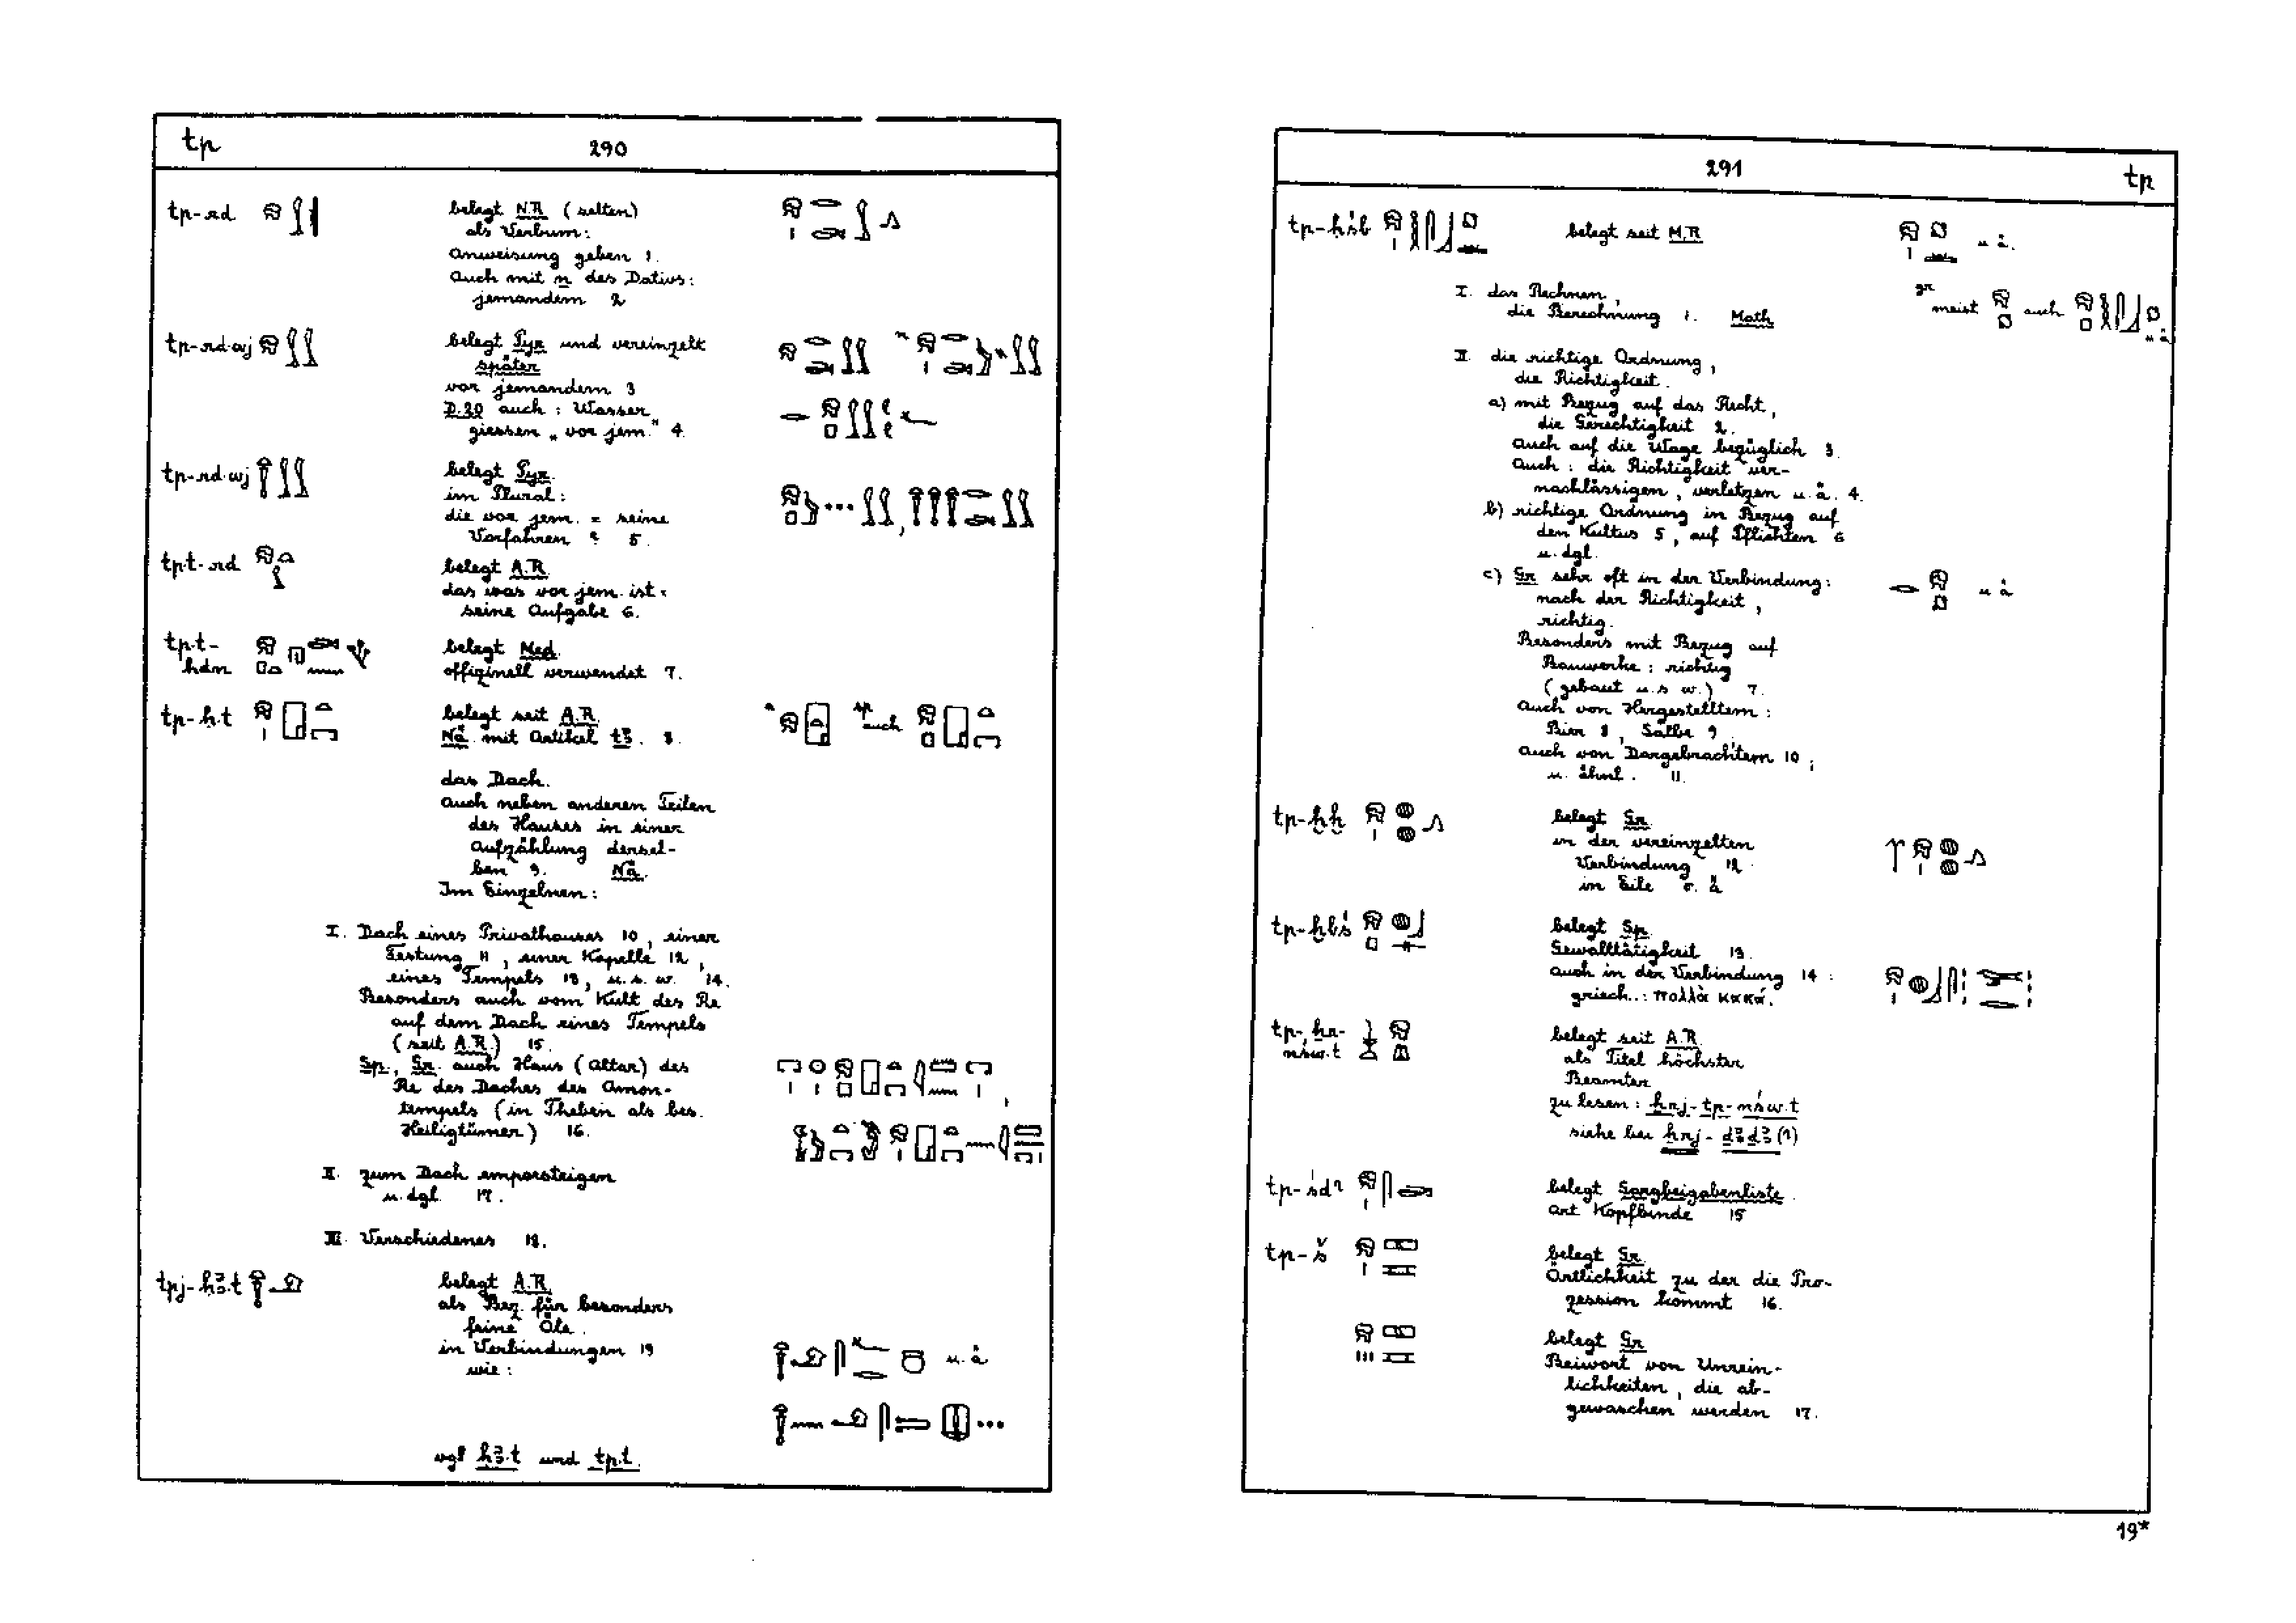 tp
290
tp-rd
belegt N.R. (selten)
als Verbum:
Anweisung geben 1.
Auch mit n des Dativs:
jemandem 2
tp-rd.wj
belegt Pyr. und vereinzelt
später
vor jemandem 3
D.20 auch: Wasser
giessen „vor jem." 4.
tp-rd.wj
belegt Pyr.
im Plural:
die vor jem. = seine
Vorfahren ? 5.
tp.t-rd
belegt A.R.
das was vor jem. ist =
seine Aufgabe 6.
tp.t-
hdn
belegt Med.
offizinell verwendet 7.
tp-ḥ.t
belegt seit A.R.
Nä. mit Artikel tꜣ. 8.
sp auch
das Dach.
Auch neben anderen Teilen
des Hauses in einer
Aufzählung dersel-
ben 9. Nä.
Im Einzelnen:
I. Dach eines Privathauses 10, einer
Festung 11, einer Kapelle 12,
eines Tempels 13, u.s.w. 14.
Besonders auch vom Kult des Re
auf dem Dach eines Tempels
(seit A.R.) 15.
Sp., Gr. auch Haus (Altar) des
Re des Daches des Amon-
tempels (in Theben als bes.
Heiligtümer) 16.
II. zum Dach emporsteigen
u. dgl. 17.
III. Verschiedenes 18.
tpj-ḥꜣ.t
belegt A.R.
als Bez. für besonders
feine Öle.
in Verbindungen 19
wie:
u. ä
vgl ḥꜣ.t und tp.t.
291
tp
tp-ḥśb
belegt seit M.R.
u ä.
gr meist
auch
u ä
I. das Rechnen,
die Berechnung 1. Math
II. die richtige Ordnung,
die Richtigkeit.
a) mit Bezug auf das Recht,
die Gerechtigkeit 2.
Auch auf die Wage bezüglich 3.
Auch: die Richtigkeit ver-
nachlässigen, verletzen u. ä. 4.
b) richtige Ordnung in Bezug auf
den Kultus 5, auf Pflichten 6
u. dgl.
c) Gr. sehr oft in der Verbindung:
u ä
nach der Richtigkeit,
richtig.
Besonders mit Bezug auf
Bauwerke: richtig
(gebaut u.s.w.) 7.
Auch von Hergestelltem:
Bier 8, Salbe 9.
Auch von Dargebrachtem 10;
u. ähnl. 11.
tp-ḫḫ
belegt Gr.
in der vereinzelten
Verbindung 12
in Eile o. ä
tp-ḫbś
belegt Sp.
Gewalttätigkeit 13.
auch in der Verbindung 14:
griech.: πολλὰ κακά.
tp-ẖr-
nśw.t
belegt seit A.R.
als Titel höchster
Beamter
zu lesen: ẖrj-tp-nśw.t
siehe bei ẖrj-ḏꜣḏꜣ (?)
tp-śdꜣ
belegt Sargbeigabenliste.
Art Kopfbinde 15
tp-š
belegt Gr.
Örtlichkeit zu der die Pro-
zession kommt 16.
belegt Gr.
Beiwort von Unrein-
lichkeiten, die ab-
gewaschen werden 17.
19*